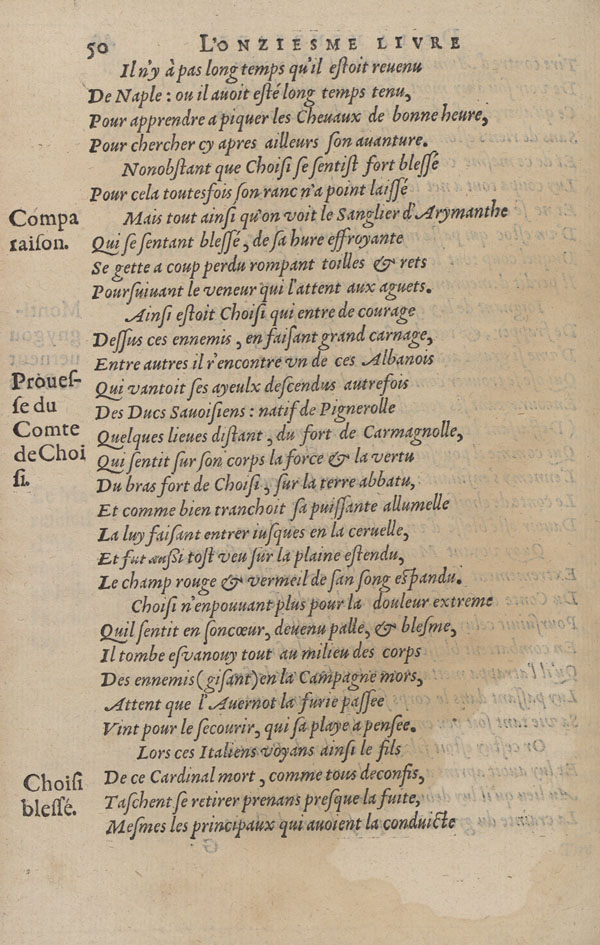 50 L'ONZIESME LIVRE
Il n'y à pas long temps qu'il estoit reuenu
De Naple : ou il auoit esté long temps tenu,
Pour apprendre a piquer les Cheuaux de bonne heure,
Pour chercher cy apres ailleurs son auanture.
Nonobstant que Choisi se sentist fort blessé
Pour cela toutesfois son ranc n'a point laissé
Compa
raison.
Mais tout ainsi qu'on voit le Sanglier d'Arymanthe
Qui se sentant blessé, de sa hure effroyante
Se gette a coup perdu rompant toilles & rets
Poursuiuant le veneur qui l'attent aux aguets.
Ainsi estoit Choisi qui entre de courage
Dessus ces ennemis, en faisant grand carnage,
Entre autres il r'encontre vn de ces Albanois
Prouës-
se du
Comte
de Choi
si.
Qui vantoit ses ayeulx descendus autrefois
Des Ducs Sauoisiens : natif de Pignerolle
Quelques lieues distant, du fort de Carmagnolle,
Qui sentit sur son corps la force & la vertu
Du bras fort de Choisi, sur la terre abbatu,
Et comme bien tranchoit sa puissante allumelle
La luy faisant entrer iusques en la ceruelle,
Et fut aussi tost veu sur la plaine estendu,
Le champ rouge & vermeil de san song espandu.
Choisi n'enpouuant plus pour la douleur extreme
Quil sentit en soncœur, deuenu palle, & blesme,
Il tombe esvanouy tout au milieu des corps
Des ennemis (gisant) en la Campagne mors,
Attent que l'Auernot la furie passee
Vint pour le secourir, qui sa playe a pensee.
Lors ces Italiens voyans ainsi le fils
Choisi
blessé.
De ce Cardinal mort, comme tous deconfis,
Taschent se retirer prenans presque la fuite,
Mesmes les principaux qui auoient la conduicte